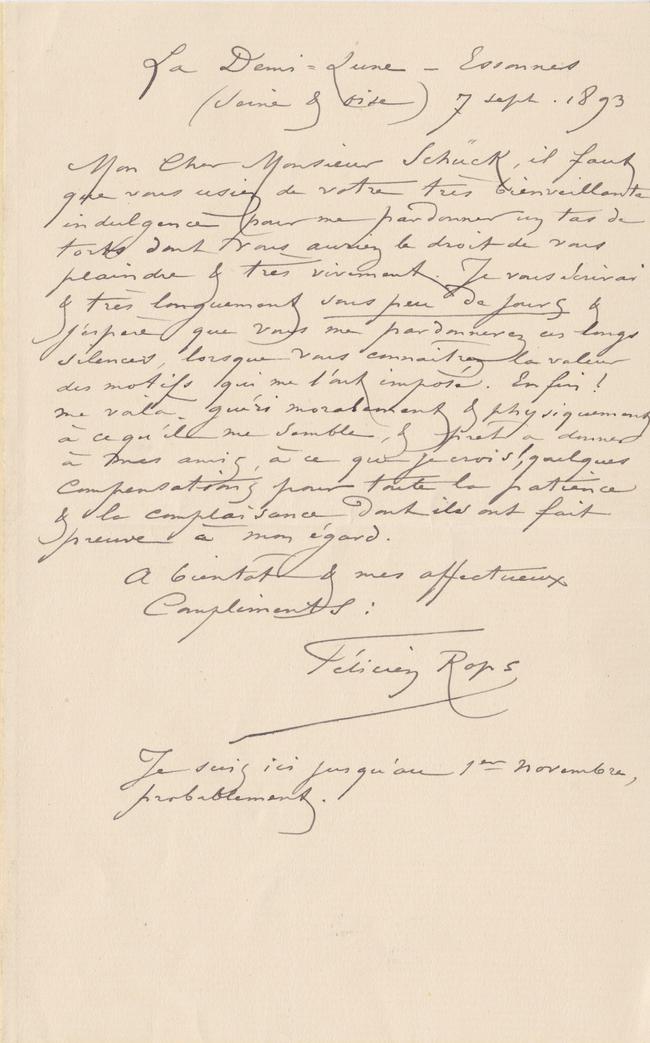 La Demi=Lune – Essonnes
(Seine & Oise) 7 sept. 1893
Mon Cher Monsieur Schück, il faut
que vous usiez de votre très bienveillante
indulgence pour me pardonner un tas de
torts dont vous auriez le droit de vous
plaindre & très vivement. Je vous écrirai
& très longuement sous peu de jours &
j'espère que vous me pardonnerez ces longs
silences, lorsque vous connaitrez la valeur
des motifs qui me l'ont imposé. Enfin!
me voilà guéri moralement & physiquement
à ce qu'il me semble, & prêt a donner
à mes amis, à ce que je crois!, quelques
compensations pour toute la patience
& la complaisance dont ils ont fait
preuve à mon égard.
A bientôt & mes affectueux
Compliments:
Félicien Rops
Je suis ici jusqu'au 1er novembre,
probablement.